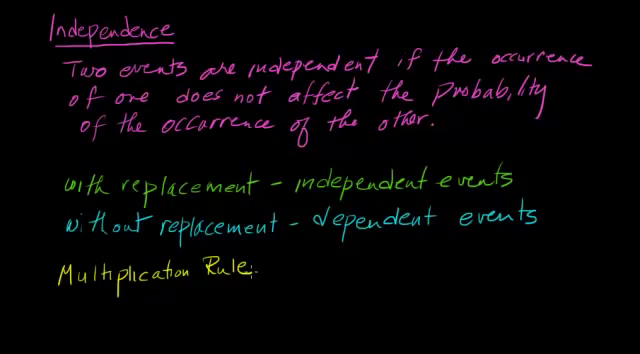 Independence
Two events are independent if the occurrence
of one does not affect the probability
of the occurrence of the other.
with replacement - independent events
without replacement - dependent events
Multiplication Rule: